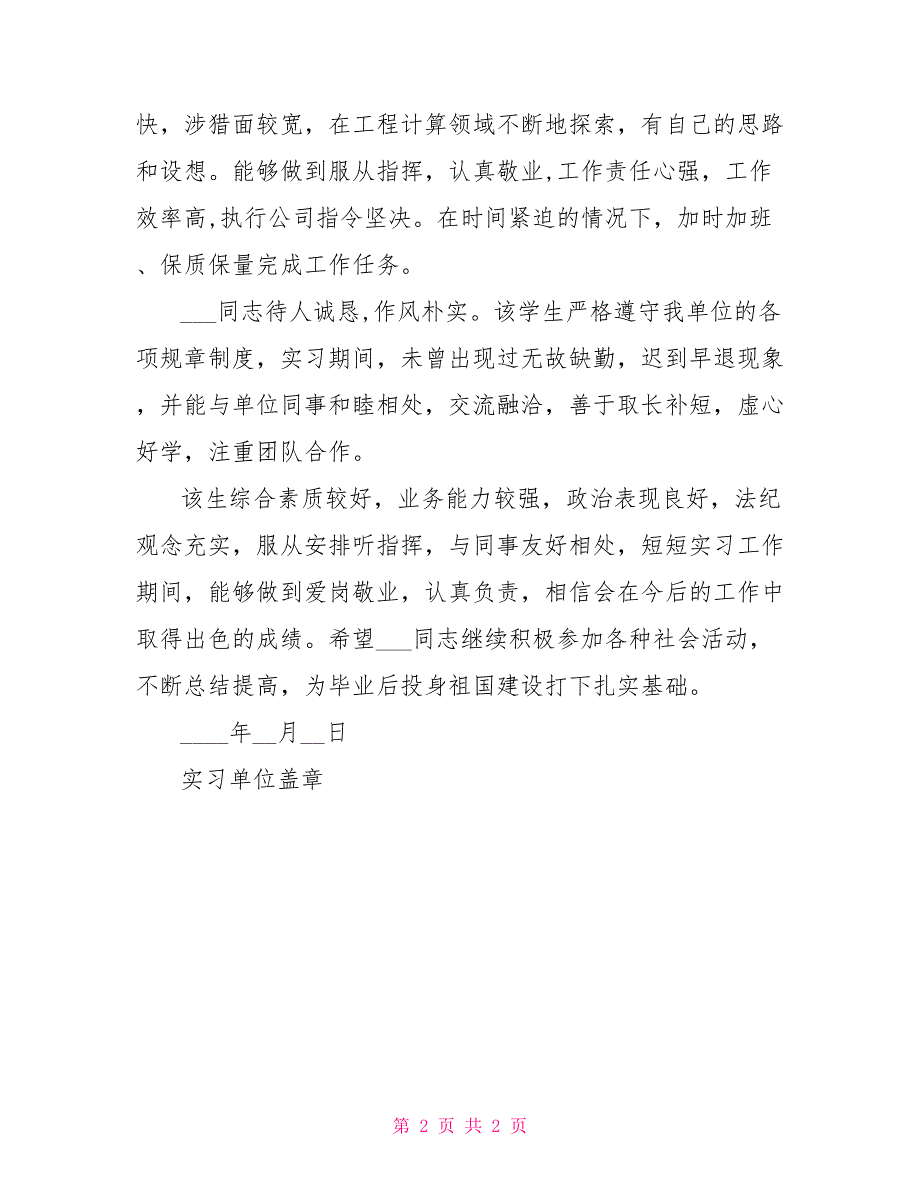 快，涉猎面较宽，在工程计算领域不断地探索，有自己的思路
和设想。能够做到服从指挥，认真敬业,工作责任心强，工作
效率高,执行公司指令坚决。在时间紧迫的情况下，加时加班
、保质保量完成工作任务。
___同志待人诚恳,作风朴实。该学生严格遵守我单位的各
项规章制度，实习期间，未曾出现过无故缺勤，迟到早退现象
，并能与单位同事和睦相处，交流融洽，善于取长补短，虚心
好学，注重团队合作。
该生综合素质较好，业务能力较强，政治表现良好，法纪
观念充实，服从安排听指挥，与同事友好相处，短短实习工作
期间，能够做到爱岗敬业，认真负责，相信会在今后的工作中
取得出色的成绩。希望___同志继续积极参加各种社会活动，
不断总结提高，为毕业后投身祖国建设打下扎实基础。
____年__月__日
实习单位盖章
第 2 页 共 2 页